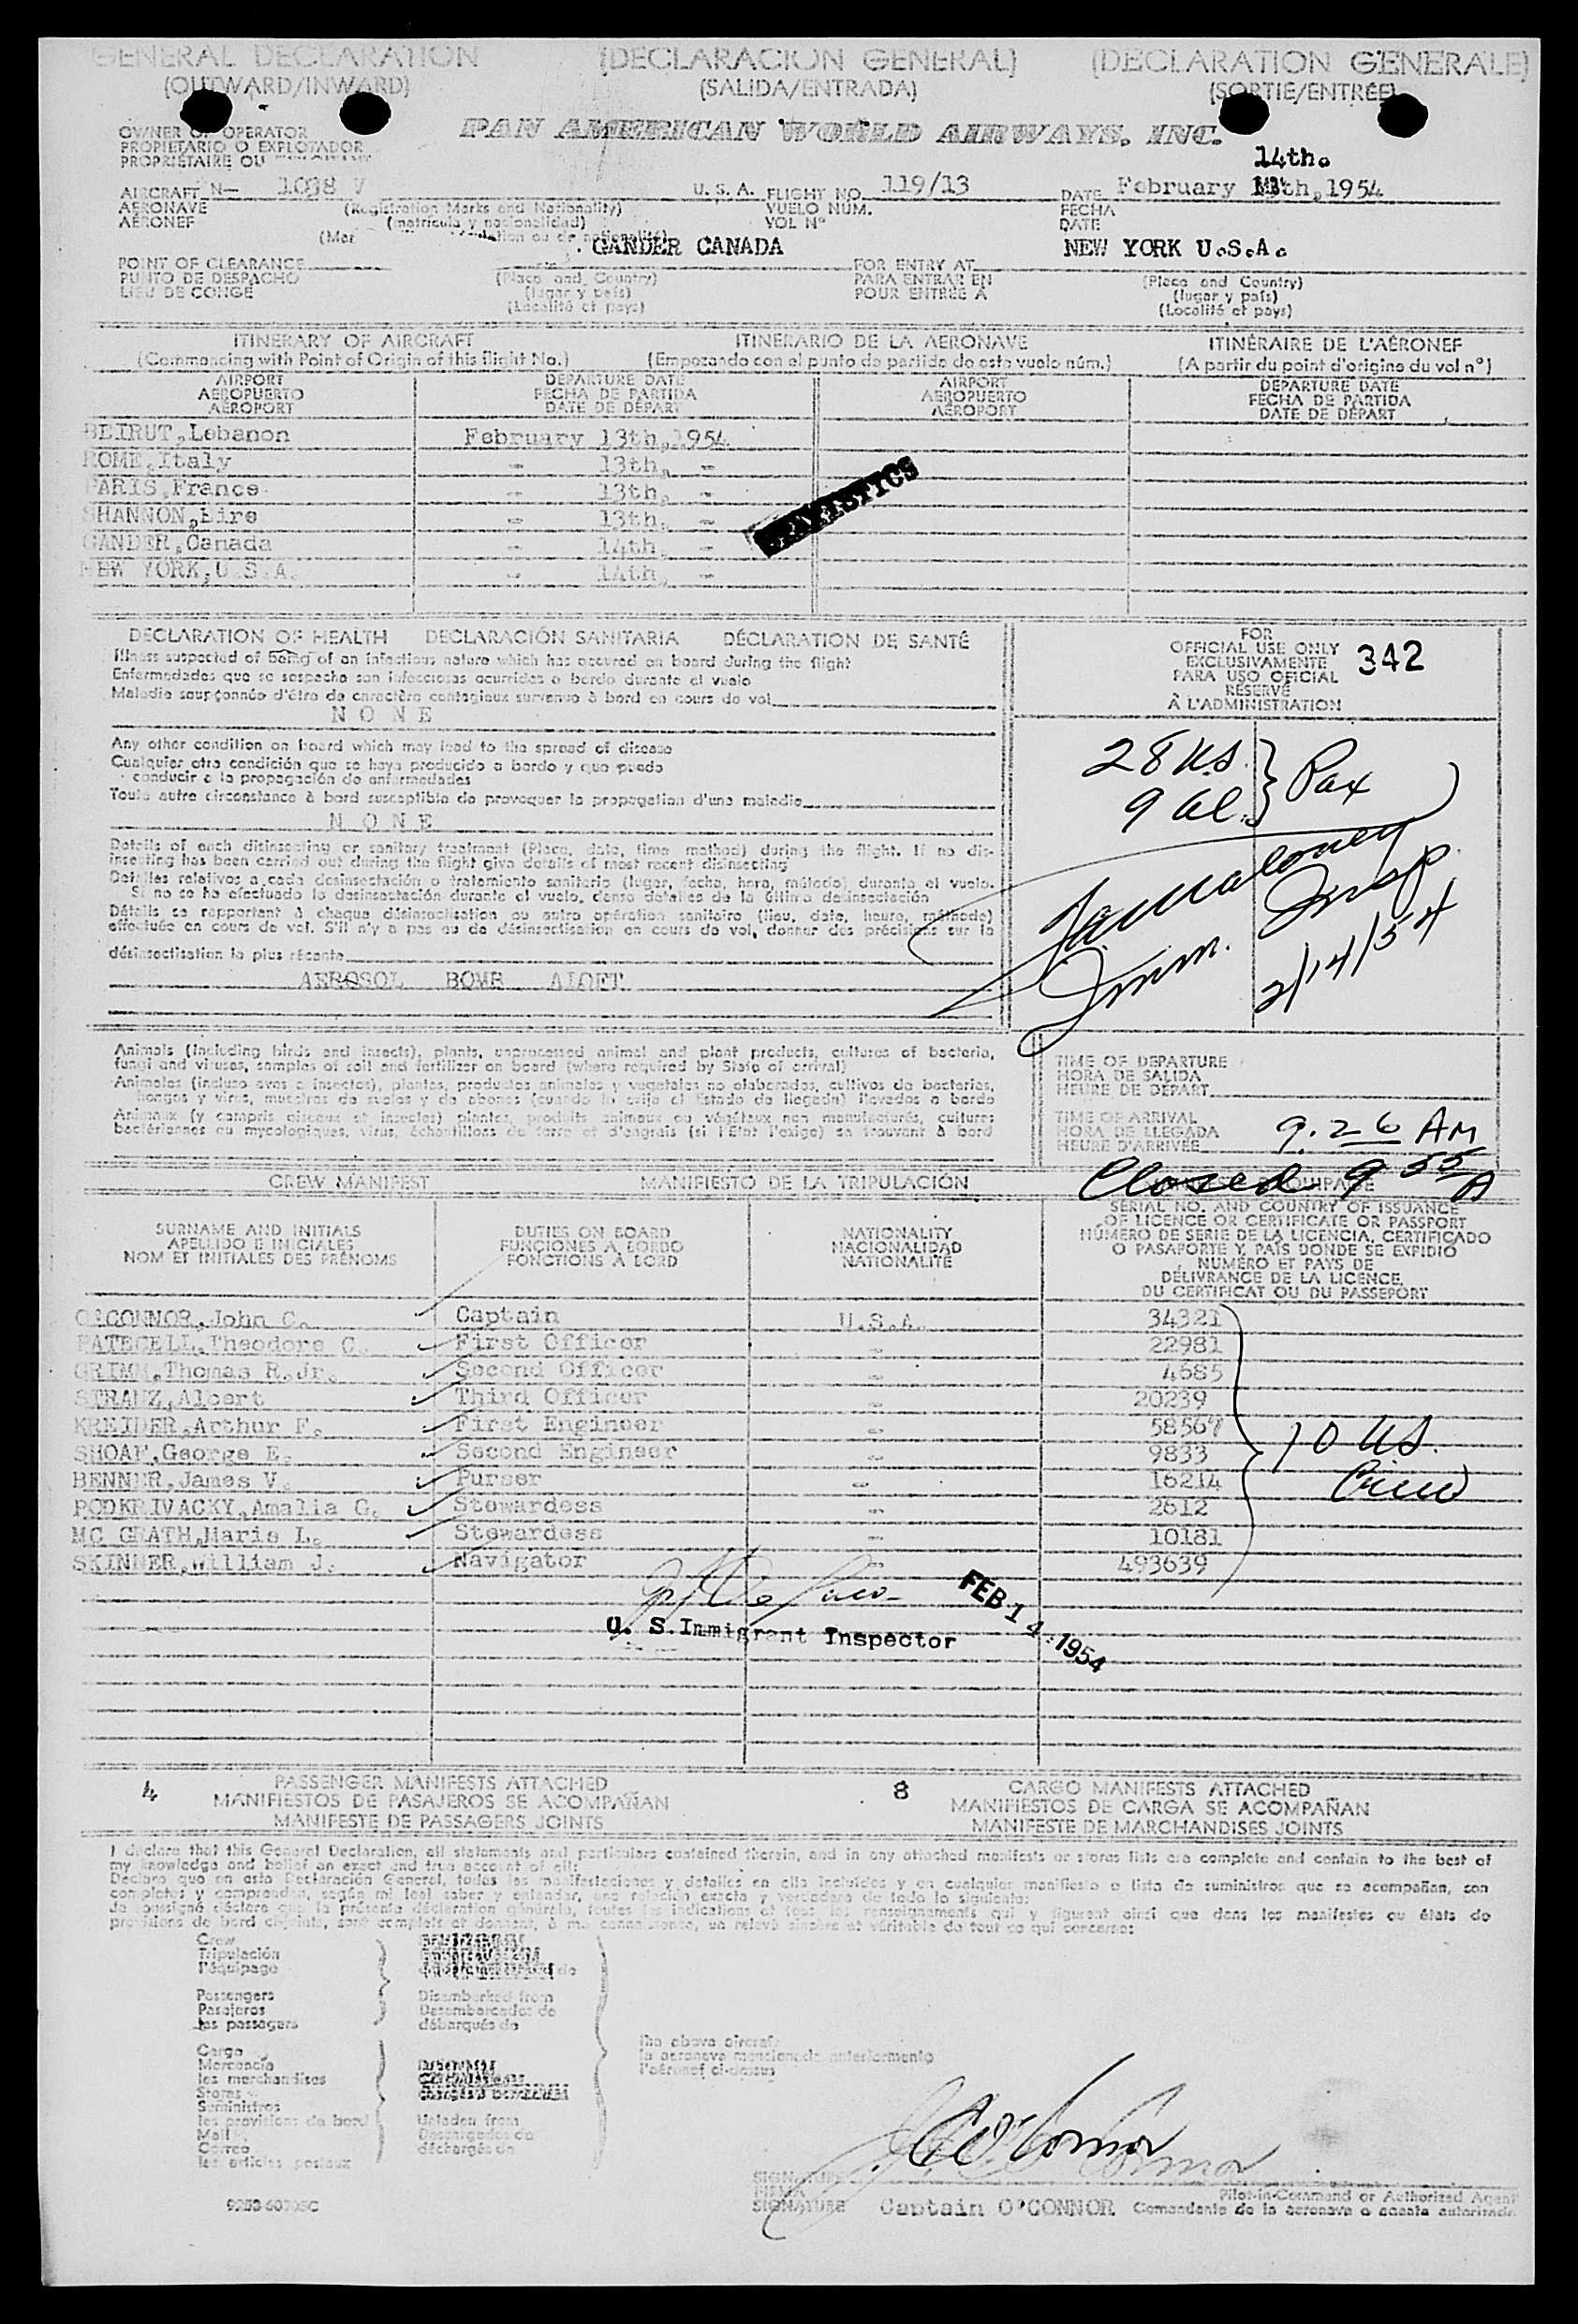 GENERAL DECLARATION (DECLARACION GENERAL) (DECLARATION GENERALE)
(OUTWARD/INWARD) (SALIDA/ENTRADA) (SORTIE/ENTRÉE)
OWNER OR OPERATOR
PROPIETARIO O EXPLOTADOR
PROPRIÉTAIRE OU
PAN AMERICAN WORLD AIRWAYS, INC.
14th.
AIRCRAFT N- 1038 V U.S.A. FLIGHT NO. 119/13 DATE February 13th,1954
AERONAVE (Registration Marks and Nationality) VUELO NÚM. FECHA
AÉRONEF (matrícula y nacionalidad) VOL N° DATE
GANDER CANADA NEW YORK U.S.A.
POINT OF CLEARANCE (Place and Country) FOR ENTRY AT (Place and Country)
PUNTO DE DESPACHO (lugar y país) PARA ENTRAR EN (lugar y país)
LIEU DE CONGÉ (Localité et pays) POUR ENTRÉE A (Localité et pays)
ITINERARY OF AIRCRAFT ITINERARIO DE LA AERONAVE ITINÉRAIRE DE L'AÉRONEF
(Commencing with Point of Origin of this flight No.) (Empezando con el punto de partida de este vuelo núm.) (A partir du point d'origine du vol n°)
AIRPORT DEPARTURE DATE AIRPORT DEPARTURE DATE
AEROPUERTO FECHA DE PARTIDA AEROPUERTO FECHA DE PARTIDA
AÉROPORT DATE DE DÉPART AÉROPORT DATE DE DÉPART
BEIRUT,Lebanon February 13th,1954
ROME,Italy - 13th, -
PARIS,France - 13th, -
SHANNON,Eire - 13th, -
GANDER,Canada - 14th, -
NEW YORK,U.S.A. - 14th, -
STATISTICS
DECLARATION OF HEALTH DECLARACIÓN SANITARIA DÉCLARATION DE SANTÉ
Illness suspected of being of an infectious nature which has occured on board during the flight
Enfermedades que se sospecha son infecciosas ocurridas a bordo durante el vuelo
Maladie soupçonnée d'être de caractère contagieux survenue à bord en cours de vol
N O N E
Any other condition on board which may lead to the spread of disease
Cualquier otra condición que se haya producido a bordo y que pueda
conducir a la propagación de enfermedades
Toute autre circonstance à bord susceptible de provoquer la propagation d'une maladie
N O N E
Details of each disinsecting or sanitary treatment (Place, date, time method) during the flight. If no dis-
insecting has been carried out during the flight give details of most recent disinsecting
Detalles relativos a cada desinsectación o tratamiento sanitario (lugar, fecha, hora, método) durante el vuelo.
Si no se ha efectuado la desinsectación durante el vuelo, dense detalles de la última desinsectación
Détails se rapportant à chaque désinsectisation ou autre opération sanitaire (lieu, date, heure, méthode)
effectuée en cours de vol. S'il n'y a pas eu de désinsectisation en cours de vol, donner des précisions sur la
désinsectisation la plus récente
AEROSOL BOMB ALOFT
FOR
OFFICIAL USE ONLY 342
EXCLUSIVAMENTE
PARA USO OFICIAL
RÉSERVÉ
À L'ADMINISTRATION
28 U.S. } Pax
9 al.
Imm. Insp.
2/14/54
Animals (including birds and insects), plants, unprocessed animal and plant products, cultures of bacteria,
fungi and viruses, samples of soil and fertilizer on board (where required by State of arrival)
Animales (incluso aves e insectos), plantas, productos animales y vegetales no elaborados, cultivos de bacterias,
hongos y virus, muestras de suelos y de abonos (cuando lo exija el Estado de llegada) llevados a bordo
Animaux (y compris oiseaux et insectes) plantes, produits animaux ou végétaux non manufacturés, cultures
bactériennes ou mycologiques, virus, échantillons de terre et d'engrais (si l'Etat l'exige) se trouvant à bord
TIME OF DEPARTURE
HORA DE SALIDA
HEURE DE DÉPART
TIME OF ARRIVAL
HORA DE LLEGADA 9.26 AM
HEURE D'ARRIVÉE
Closed 9 55 A
CREW MANIFEST MANIFIESTO DE LA TRIPULACIÓN
SURNAME AND INITIALS DUTIES ON BOARD NATIONALITY
APELLIDO E INICIALES FUNCIONES A BORDO NACIONALIDAD
NOM ET INITIALES DES PRÉNOMS FONCTIONS À BORD NATIONALITÉ
SERIAL NO. AND COUNTRY OF ISSUANCE
OF LICENCE OR CERTIFICATE OR PASSPORT
NÚMERO DE SERIE DE LA LICENCIA, CERTIFICADO
O PASAPORTE Y PAÍS DONDE SE EXPIDIÓ
NUMÉRO ET PAYS DE
DÉLIVRANCE DE LA LICENCE,
DU CERTIFICAT OU DU PASSEPORT
O'CONNOR,John C. Captain U.S.A. 34321
PATECELL,Theodore C. First Officer - 22981
GRIMM,Thomas R.Jr. Second Officer - 4685
STRANZ,Albert Third Officer - 20239
KREIDER,Arthur F. First Engineer - 58567
SHOAF,George E. Second Engineer - 9833
BENNER,James V. Purser - 16214
PODKRIVACKY,Amalia G. Stewardess - 2612
MC GRATH,Marie L. Stewardess - 10181
SKINNER,William J. Navigator - 493639
10 U.S.
Crew
U. S. Immigrant Inspector
FEB 14 1954
4 PASSENGER MANIFESTS ATTACHED 8 CARGO MANIFESTS ATTACHED
MANIFIESTOS DE PASAJEROS SE ACOMPAÑAN MANIFIESTOS DE CARGA SE ACOMPAÑAN
MANIFESTE DE PASSAGERS JOINTS MANIFESTE DE MARCHANDISES JOINTS
I declare that this General Declaration, all statements and particulars contained therein, and in any attached manifests or stores lists are complete and contain to the best of
my knowledge and belief an exact and true account of all:
Declaro que en esta Declaración General, todas las manifestaciones y detalles en ella incluídos y en cualquier manifiesto o lista de suministros que se acompañan, son
completos y comprenden, según mi leal saber y entender, una relación exacta y verdadera de todo lo siguiente:
Je soussigné déclare que la présente déclaration générale, toutes les indications et tous les renseignements qui y figurent ainsi que dans les manifestes ou états de
provisions de bord ci-joints, sont complets et donnent, à ma connaissance, un relevé sincère et véritable de tout ce qui concerne:
Crew
Tripulación
l'équipage
Passengers Disembarked from
Pasajeros Desembarcados de
les passagers débarqués de
Cargo the above aircraft
Mercancía la aeronave mencionada anteriormente
les marchandises l'aéronef ci-dessus
Stores
Suministros
les provisions de bord Unladen from
Mail Descargados de
Correo déchargés de
les articles postaux
J. C. O'Connor
SIGNATURE
FIRMA
SIGNATURE Captain O'CONNOR
Pilot-in-Command or Authorized Agent
Comandante de la aeronave o agente autorizado